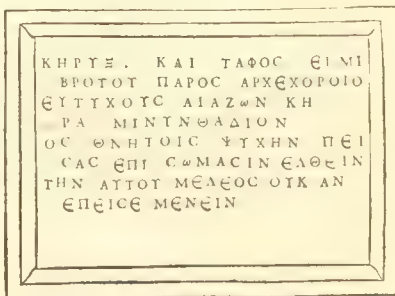 ΚΗΡΥΞ. ΚΑΙ ΤΑΦΟϹ ΕΙΜΙ
ΒΡΟΤΟΥ ΠΑΡΟϹ ΑΡΧΕΧΟΡΟΙΟ
ΕΥΤΥΧΟΥϹ ΑΙΑΖωΝ ΚΗ
ΡΑ ΜΙΝΥΝΘΑΔΙΟΝ
ΟϹ ΘΝΗΤΟΙϹ ΨΥΧΗΝ ΠΕΙ
ϹΑϹ ΕΠΙ ϹωΜΑϹΙΝ ΕΛΘΕΙΝ
ΤΗΝ ΑΥΤΟΥ ΜΕΛΕΟϹ ΟΥΚ ΑΝ
ΕΠΕΙϹΕ ΜΕΝΕΙΝ